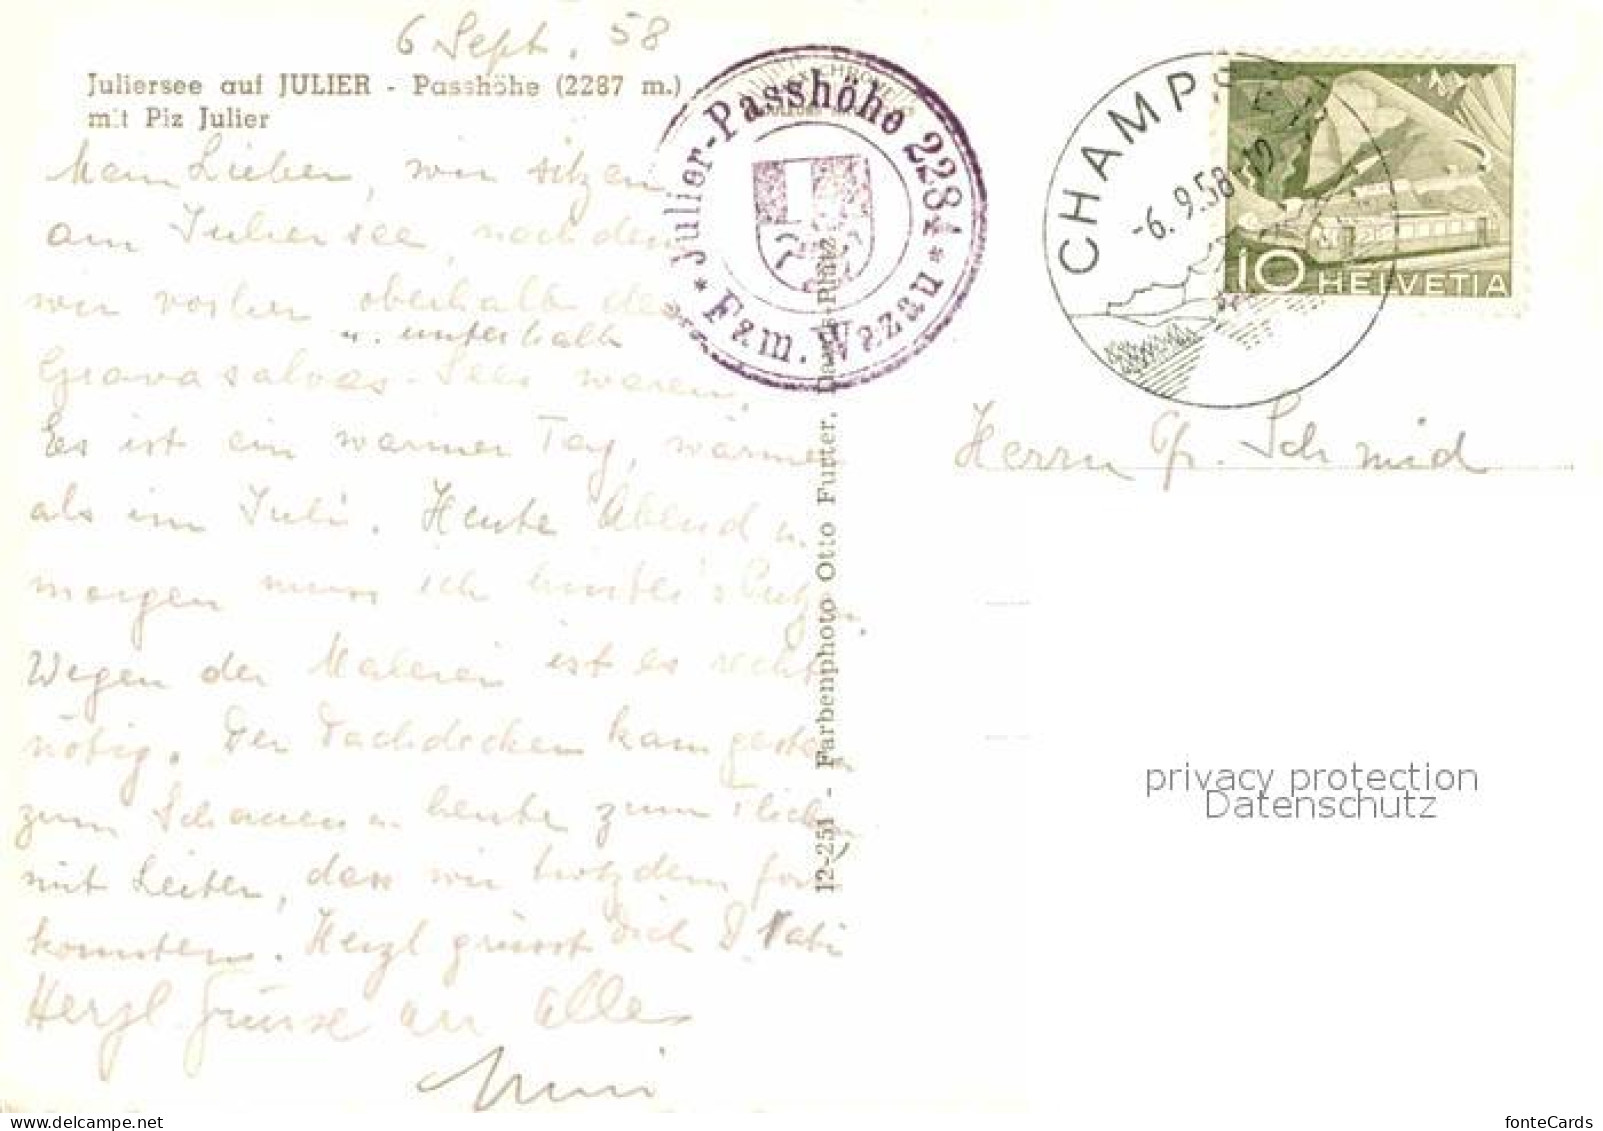 6 Sept. 58
Juliersee auf JULIER - Passhöhe (2287 m.)
mit Piz Julier
Mein Lieber, wir sitzen
am Juliersee, nachdem
wir vorher oberhalb der
u. unterhalb
Gravasalvas-Seen waren.
Es ist ein warmer Tag, wärmer
als im Juli. Heute Abend u.
morgen muss ich hinter's Putzen.
Wegen der Malerei ist es recht
nötig. Der Dachdecker kam gestern
zum Schauen u. heute zum Flicken
mit Leiter, dass wir trotzdem fort
konnten. Herzl. grüsst dich D Vati
Herzl Grüsse an alle
Julier-Passhöhe 2284
* Fam. Wazau *
12-251 - Farbenphoto Otto Furter, Davos-Platz
CHAMPFÈR
-6.9.58
10 HELVETIA
Herrn Schmid
privacy protection
Datenschutz
fonteCards